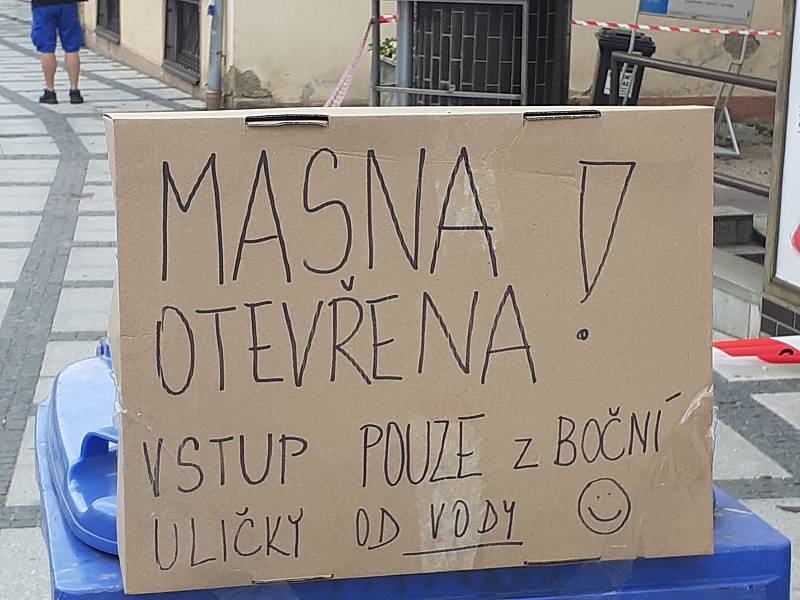 MASNA !
OTEVŘENA
VSTUP POUZE z BOČNÍ
ULIČKY OD VODY